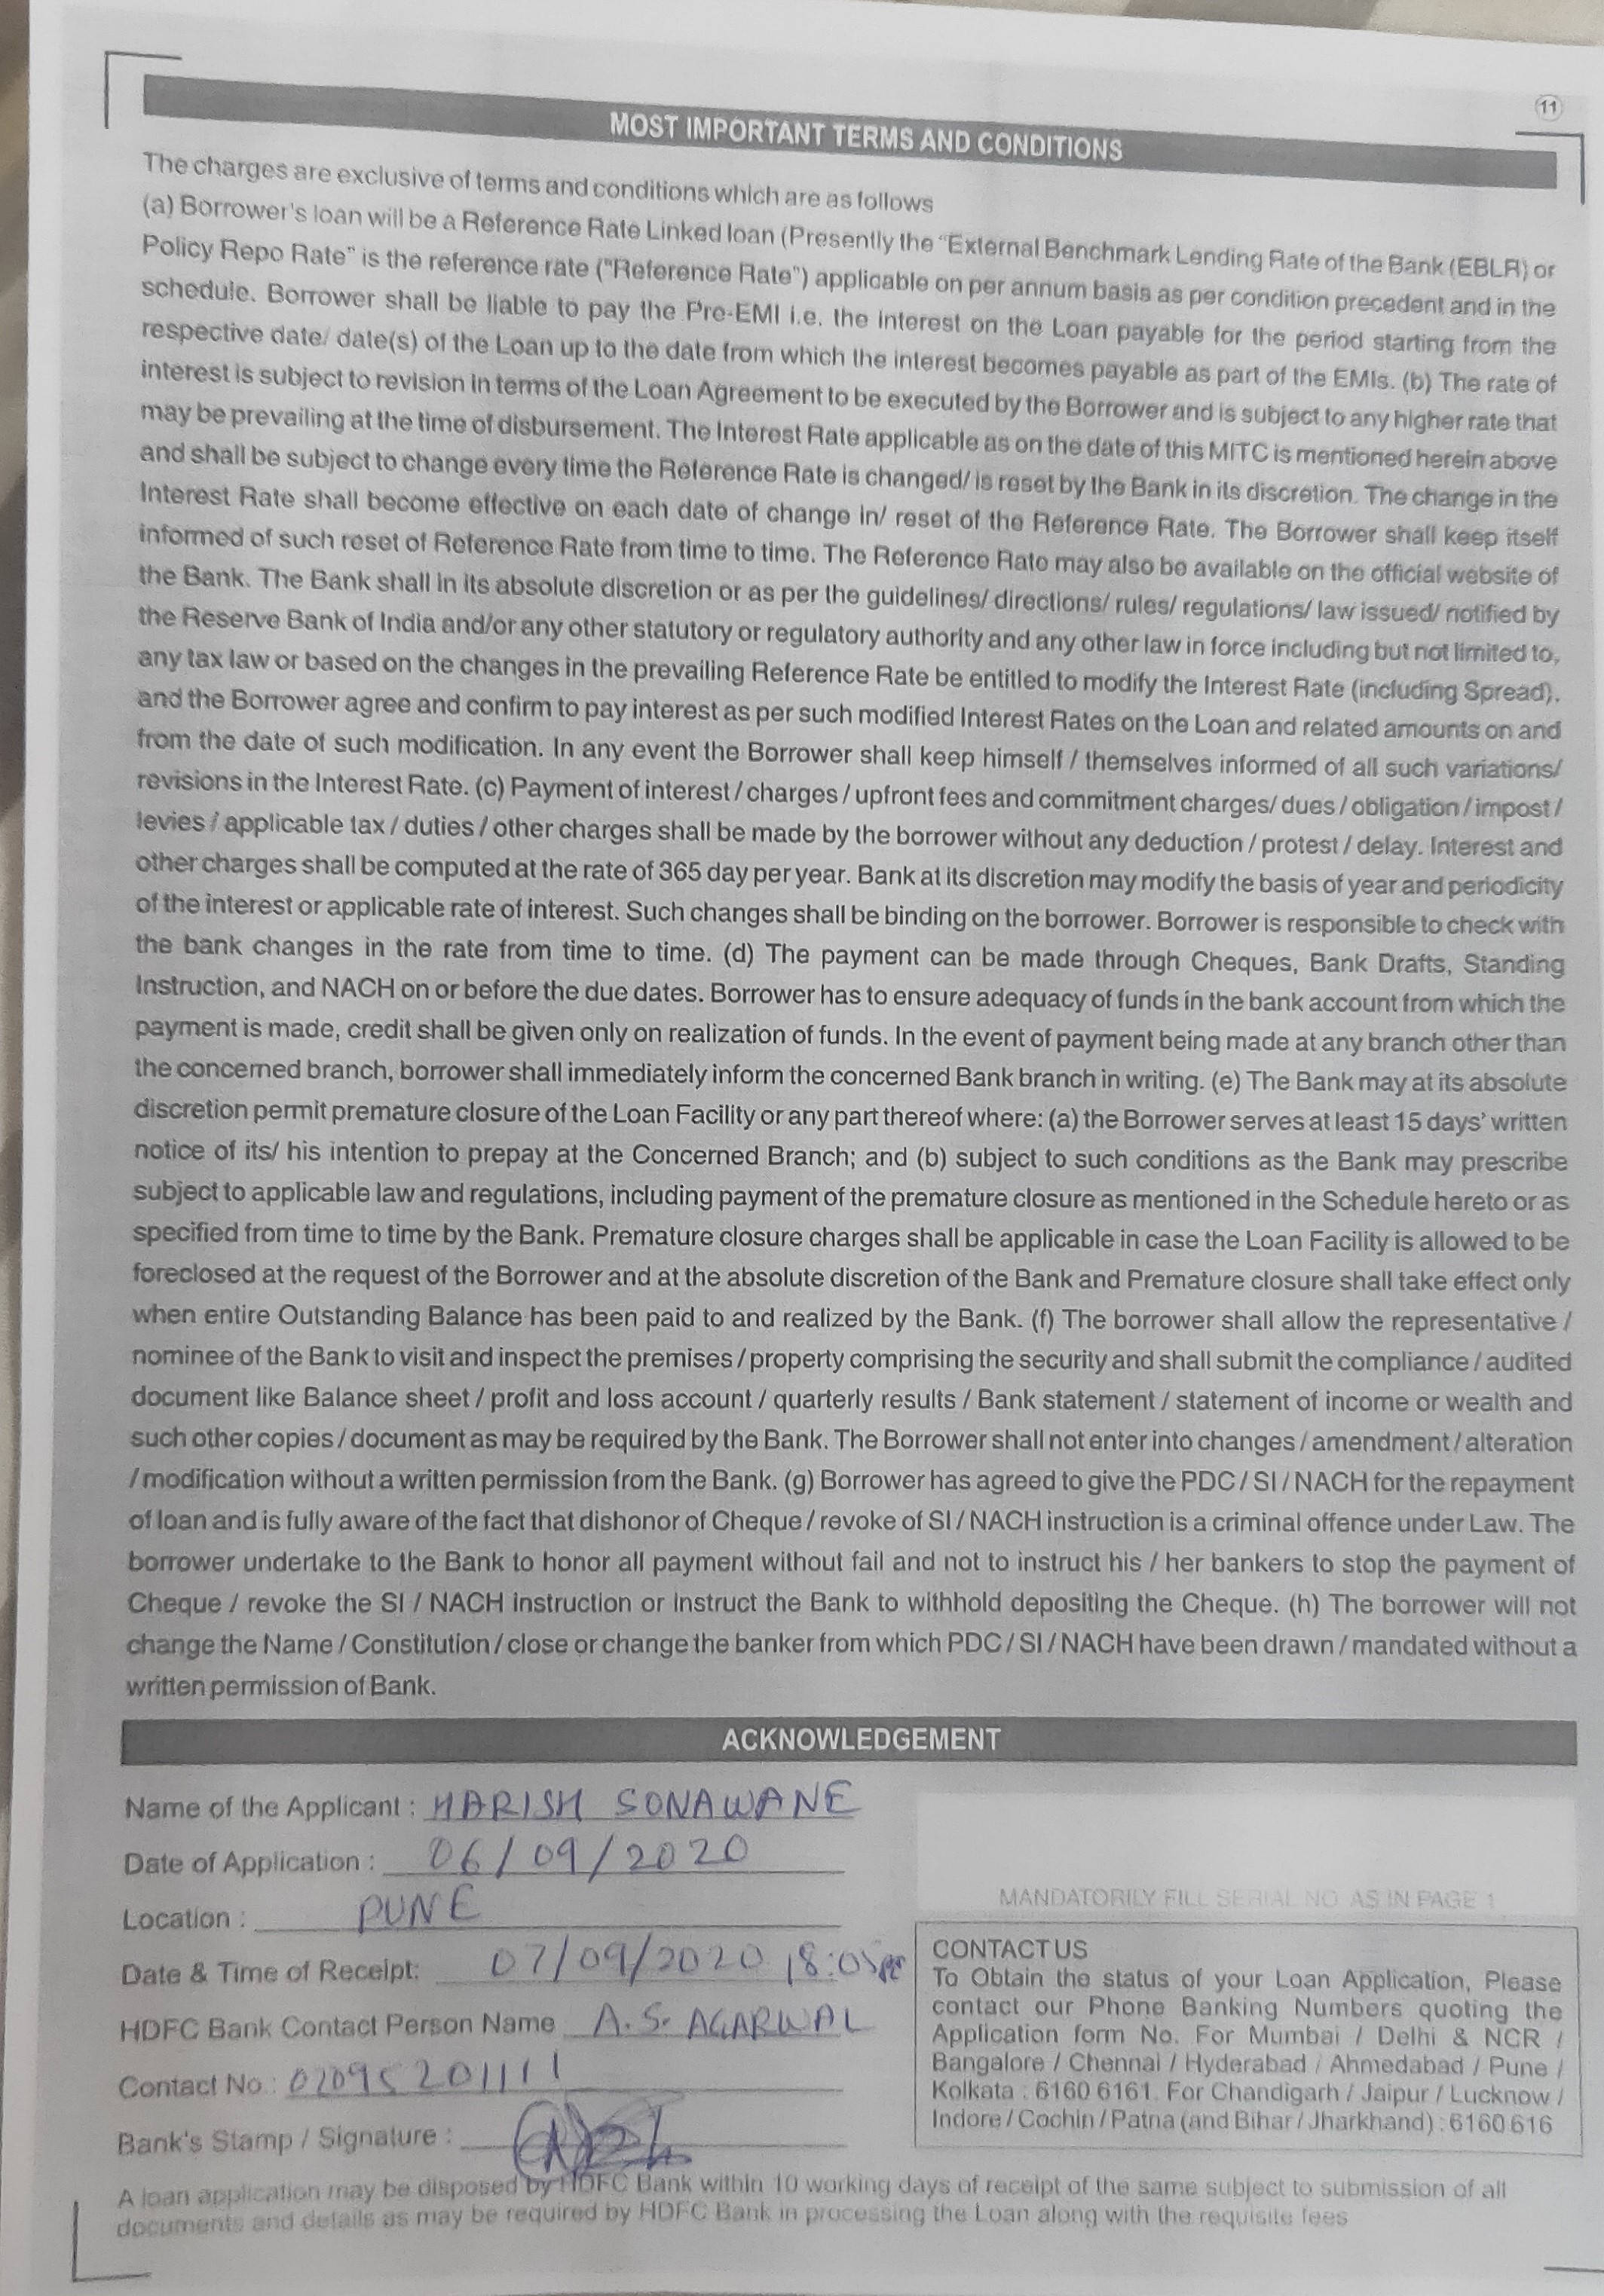 11
MOST IMPORTANT TERMS AND CONDITIONS
The charges are exclusive of terms and conditions which are as follows
(a) Borrower's loan will be a Reference Rate Linked loan (Presently the "External Benchmark Lending Rate of the Bank (EBLR) or
Policy Repo Rate" is the reference rate ("Reference Rate") applicable on per annum basis as per condition precedent and in the
schedule. Borrower shall be liable to pay the Pre-EMI i.e. the interest on the Loan payable for the period starting from the
respective date/ date(s) of the Loan up to the date from which the interest becomes payable as part of the EMIs. (b) The rate of
interest is subject to revision in terms of the Loan Agreement to be executed by the Borrower and is subject to any higher rate that
may be prevailing at the time of disbursement. The Interest Rate applicable as on the date of this MITC is mentioned herein above
and shall be subject to change every time the Reference Rate is changed/ is reset by the Bank in its discretion. The change in the
Interest Rate shall become effective on each date of change in/ reset of the Reference Rate. The Borrower shall keep itself
informed of such reset of Reference Rate from time to time. The Reference Rate may also be available on the official website of
the Bank. The Bank shall in its absolute discretion or as per the guidelines/ directions/ rules/ regulations/ law issued/ notified by
the Reserve Bank of India and/or any other statutory or regulatory authority and any other law in force including but not limited to,
any tax law or based on the changes in the prevailing Reference Rate be entitled to modify the Interest Rate (including Spread),
and the Borrower agree and confirm to pay interest as per such modified Interest Rates on the Loan and related amounts on and
from the date of such modification. In any event the Borrower shall keep himself / themselves informed of all such variations/
revisions in the Interest Rate. (c) Payment of interest / charges / upfront fees and commitment charges/ dues / obligation / impost /
levies / applicable tax / duties / other charges shall be made by the borrower without any deduction / protest / delay. Interest and
other charges shall be computed at the rate of 365 day per year. Bank at its discretion may modify the basis of year and periodicity
of the interest or applicable rate of interest. Such changes shall be binding on the borrower. Borrower is responsible to check with
the bank changes in the rate from time to time. (d) The payment can be made through Cheques, Bank Drafts, Standing
Instruction, and NACH on or before the due dates. Borrower has to ensure adequacy of funds in the bank account from which the
payment is made, credit shall be given only on realization of funds. In the event of payment being made at any branch other than
the concerned branch, borrower shall immediately inform the concerned Bank branch in writing. (e) The Bank may at its absolute
discretion permit premature closure of the Loan Facility or any part thereof where: (a) the Borrower serves at least 15 days' written
notice of its/ his intention to prepay at the Concerned Branch; and (b) subject to such conditions as the Bank may prescribe
subject to applicable law and regulations, including payment of the premature closure as mentioned in the Schedule hereto or as
specified from time to time by the Bank. Premature closure charges shall be applicable in case the Loan Facility is allowed to be
foreclosed at the request of the Borrower and at the absolute discretion of the Bank and Premature closure shall take effect only
when entire Outstanding Balance has been paid to and realized by the Bank. (f) The borrower shall allow the representative /
nominee of the Bank to visit and inspect the premises / property comprising the security and shall submit the compliance / audited
document like Balance sheet / profit and loss account / quarterly results / Bank statement / statement of income or wealth and
such other copies / document as may be required by the Bank. The Borrower shall not enter into changes / amendment / alteration
/ modification without a written permission from the Bank. (g) Borrower has agreed to give the PDC / SI / NACH for the repayment
of loan and is fully aware of the fact that dishonor of Cheque / revoke of SI / NACH instruction is a criminal offence under Law. The
borrower undertake to the Bank to honor all payment without fail and not to instruct his / her bankers to stop the payment of
Cheque / revoke the SI / NACH instruction or instruct the Bank to withhold depositing the Cheque. (h) The borrower will not
change the Name / Constitution / close or change the banker from which PDC / SI / NACH have been drawn / mandated without a
written permission of Bank.
ACKNOWLEDGEMENT
Name of the Applicant : HARISH SONAWANE
Date of Application : 06/09/2020
Location : PUNE
Date & Time of Receipt: 07/09/2020 18:05
HDFC Bank Contact Person Name A. S. AGARWAL
Contact No.: 02095201111
Bank's Stamp / Signature :
MANDATORILY FILL SERIAL NO AS IN PAGE 1
CONTACT US
To Obtain the status of your Loan Application, Please
contact our Phone Banking Numbers quoting the
Application form No. For Mumbai / Delhi & NCR /
Bangalore / Chennai / Hyderabad / Ahmedabad / Pune /
Kolkata : 6160 6161. For Chandigarh / Jaipur / Lucknow /
Indore / Cochin / Patna (and Bihar / Jharkhand) : 6160 616
A loan application may be disposed by HDFC Bank within 10 working days of receipt of the same subject to submission of all
documents and details as may be required by HDFC Bank in processing the Loan along with the requisite fees